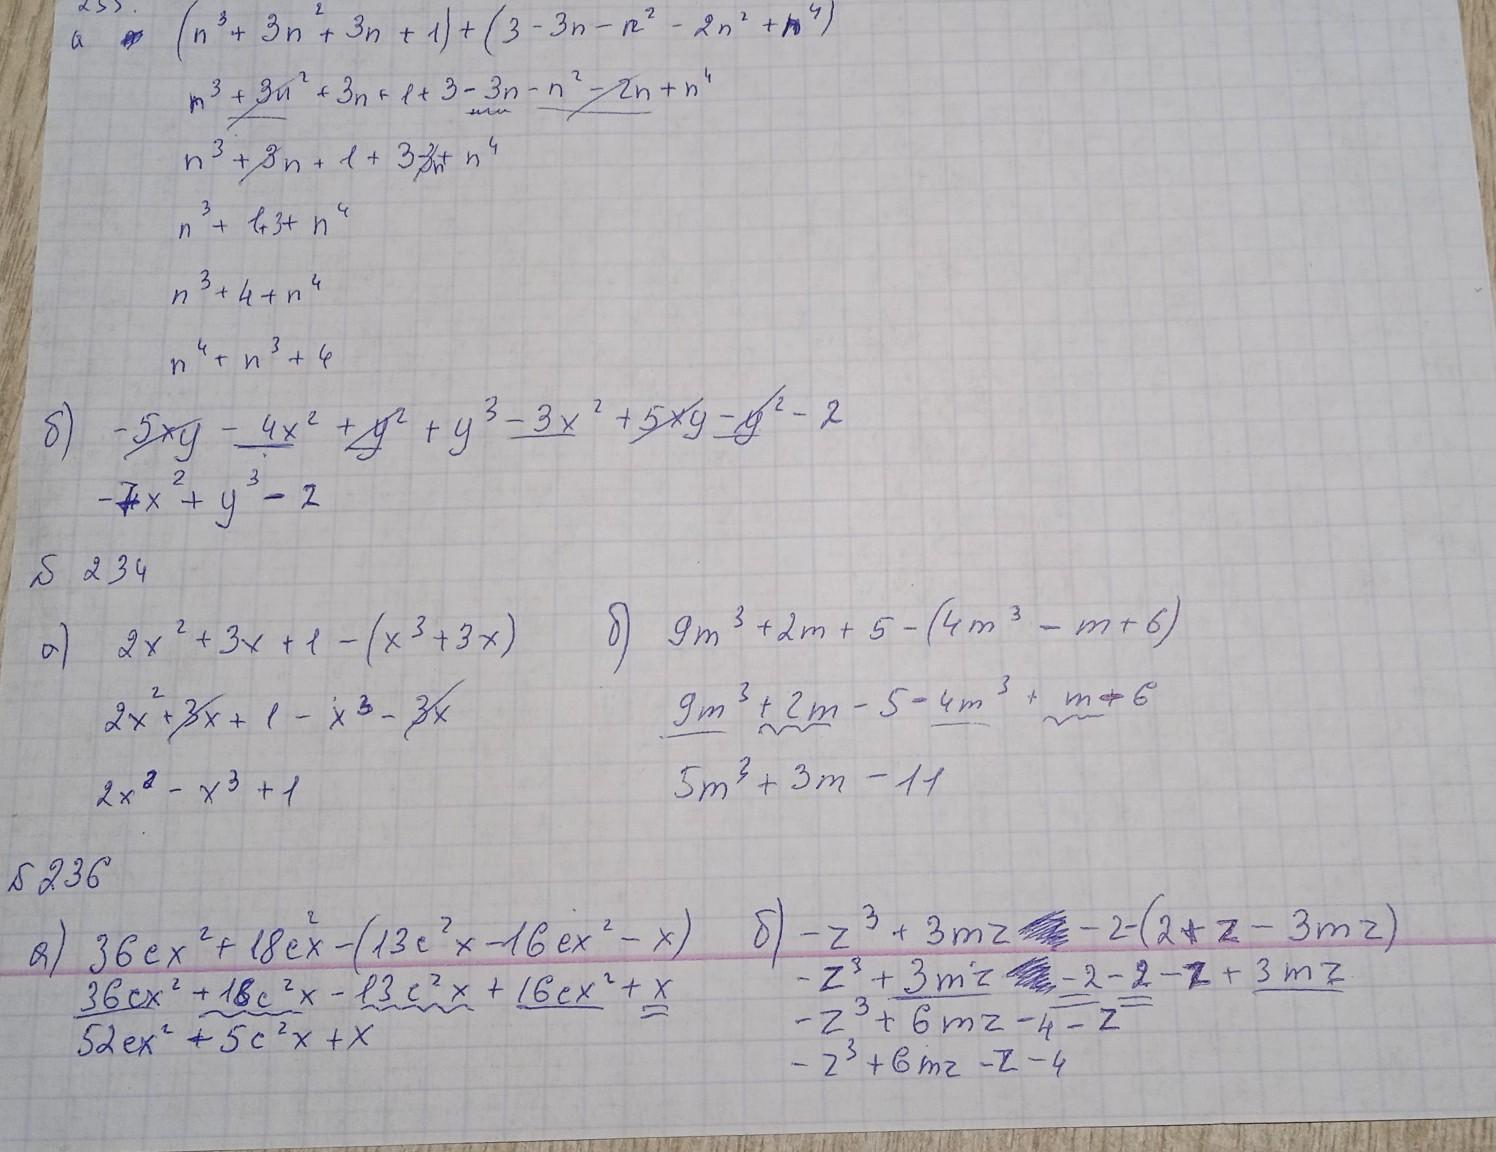 233.
а (n³ + 3n² + 3n + 1) + (3 - 3n - n² - 2n² + n⁴)
n³ + 3n² + 3n + 1 + 3 - 3n - n² - 2n + n⁴
n³ + 3n + 1 + 3 - 3n + n⁴
n³ + 1+3+ n⁴
n³ + 4 + n⁴
n⁴ + n³ + 4
б) -5xy - 4x² + y² + y³ - 3x² + 5xy - y² - 2
-7x² + y³ - 2
Б 234
а) 2x² + 3x + 1 - (x³ + 3x)
2x² + 3x + 1 - x³ - 3x
2x² - x³ + 1
б) 9m³ + 2m + 5 - (4m³ - m + 6)
9m³ + 2m - 5 - 4m³ + m - 6
5m³ + 3m - 11
Б 236
а) 36cx² + 18c²x - (13c²x - 16cx² - x)
36cx² + 18c²x - 13c²x + 16cx² + x
52cx² + 5c²x + x
б) -z³ + 3mz - 2 - (2 + z - 3mz)
-z³ + 3mz - 2 - 2 - z + 3mz
-z³ + 6mz - 4 - z
-z³ + 6mz - z - 4